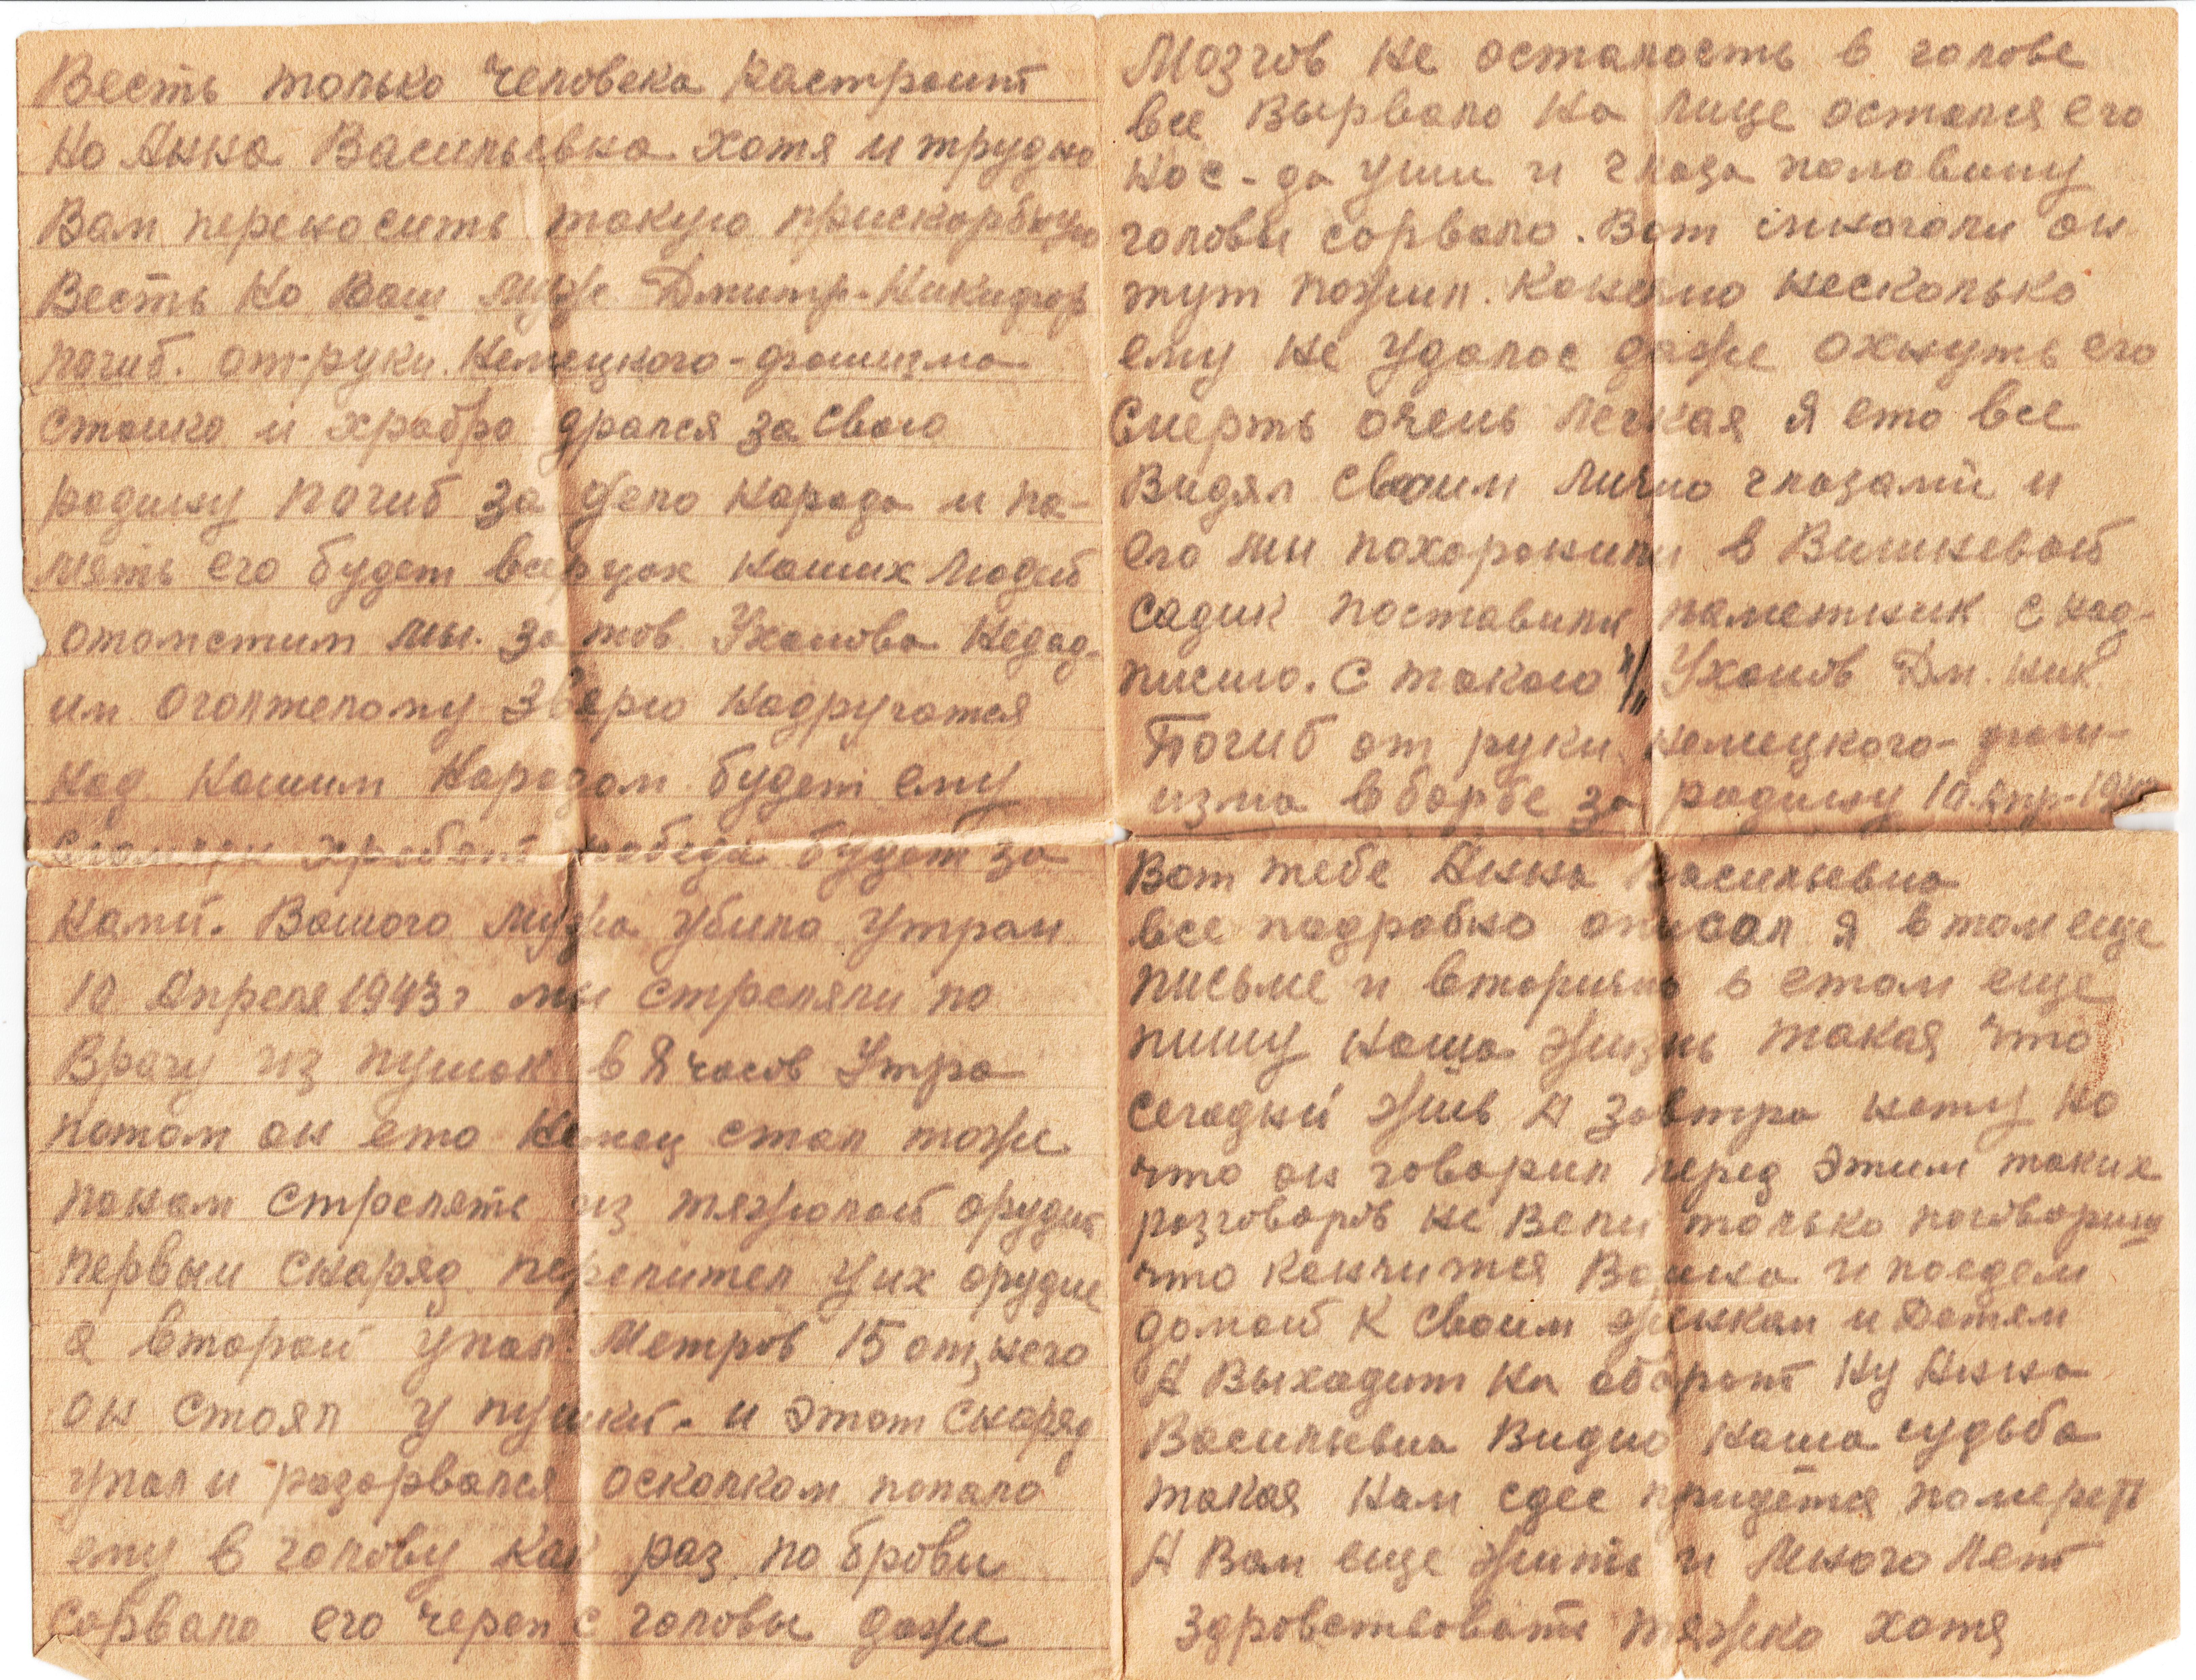 Весть только человека растроит
но Анна Васильевна хотя и трудно
Вам переносить такую прискорбную
Весть но Ваш муж Дмитр-Никифор
погиб. от-руки. Немецкого-фашизма
стоико и храбро дрался за свою
родину погиб за дело народа и па-
мять его будет наших людей
отомстим мы. за тов. Ухалова недад-
им оголтелому зверю надругатся
над нашим народом будет ему
сломлен хребет победа будет за
нами. Вашого мужа убило утром
10 Апреля 1943 г мы стреляли по
Врагу из пушок в 8 часов утра
потом он ето Немец стал тоже
понам стрелять из тяжолой орудий
первыи снаряд перелител уих орудие
а второй упал. Метров 15 от него
он стоял у пушки. и этот снаряд
упал и разорвался осколком попало
ему в голову как раз по брови
сорвало его череп с головы даже
Мозгов не осталость в голове
все вырвало на лице остался его
нос-да уши и глаза половину
головы сорвало. Вот он
тут пожил. Конечно несколько
ему не удалос даже охнуть его
Смерть очень легкая я ето все
Видял своим лично глазами и
его мы похоронили в Вишневой
садик поставили паметник с над-
писию. с такою "/" Ухалов Дм. Ник.
Погиб от руки. немецкого-фаш-
изма в борбе за родину 10-Апр-19
Вот тебе Анна Васильевна
все подробно описал я в том еще
письме и вторично в етом еще
пишу наша жизнь такая что
сегодни жив А завтра нету но
что он говорил перед этим таких
розговоров не Вели только поговориш
что кончится Война и поедем
домой к своим женкам и Детям
А Выходит на оборот Ну Анна
Васильевна Видно наша судьба
такая нам сдес придется померет
А Вам еще жить и много лет
здровствовать тяжко хотя